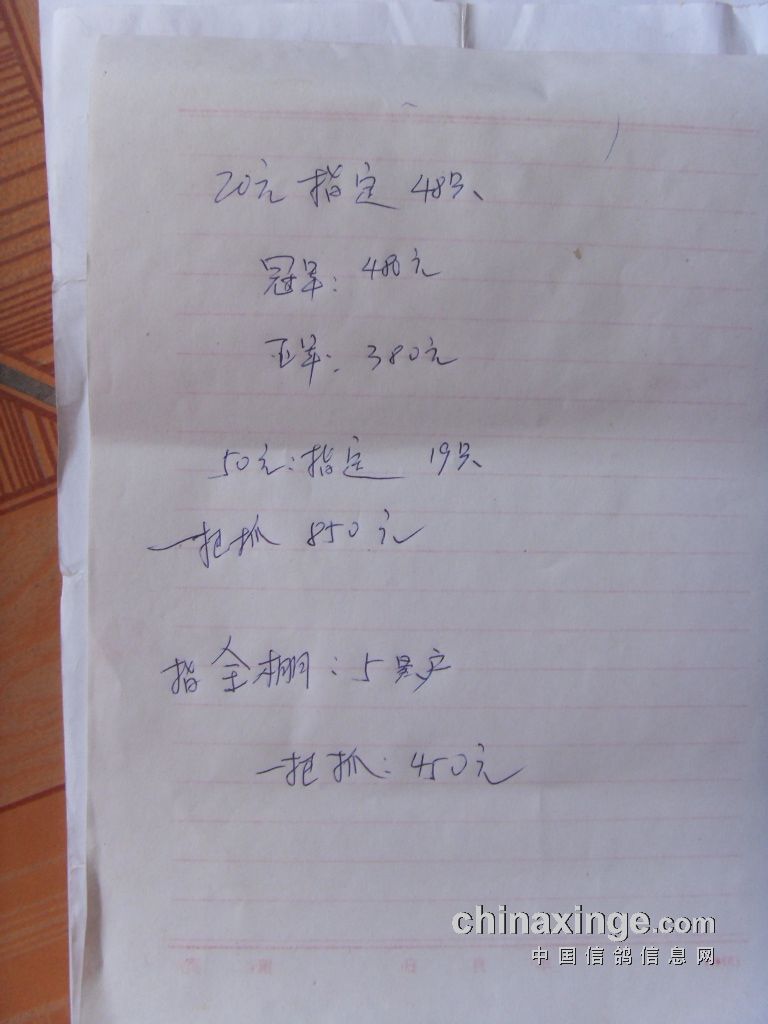 20元 指定 48只、
冠军: 480元
亚军: 380元
50元:指定 19只、
一把抓 850元
指全棚: 5 户
一把抓: 450元
chinaxinge.com
中国信鸽信息网